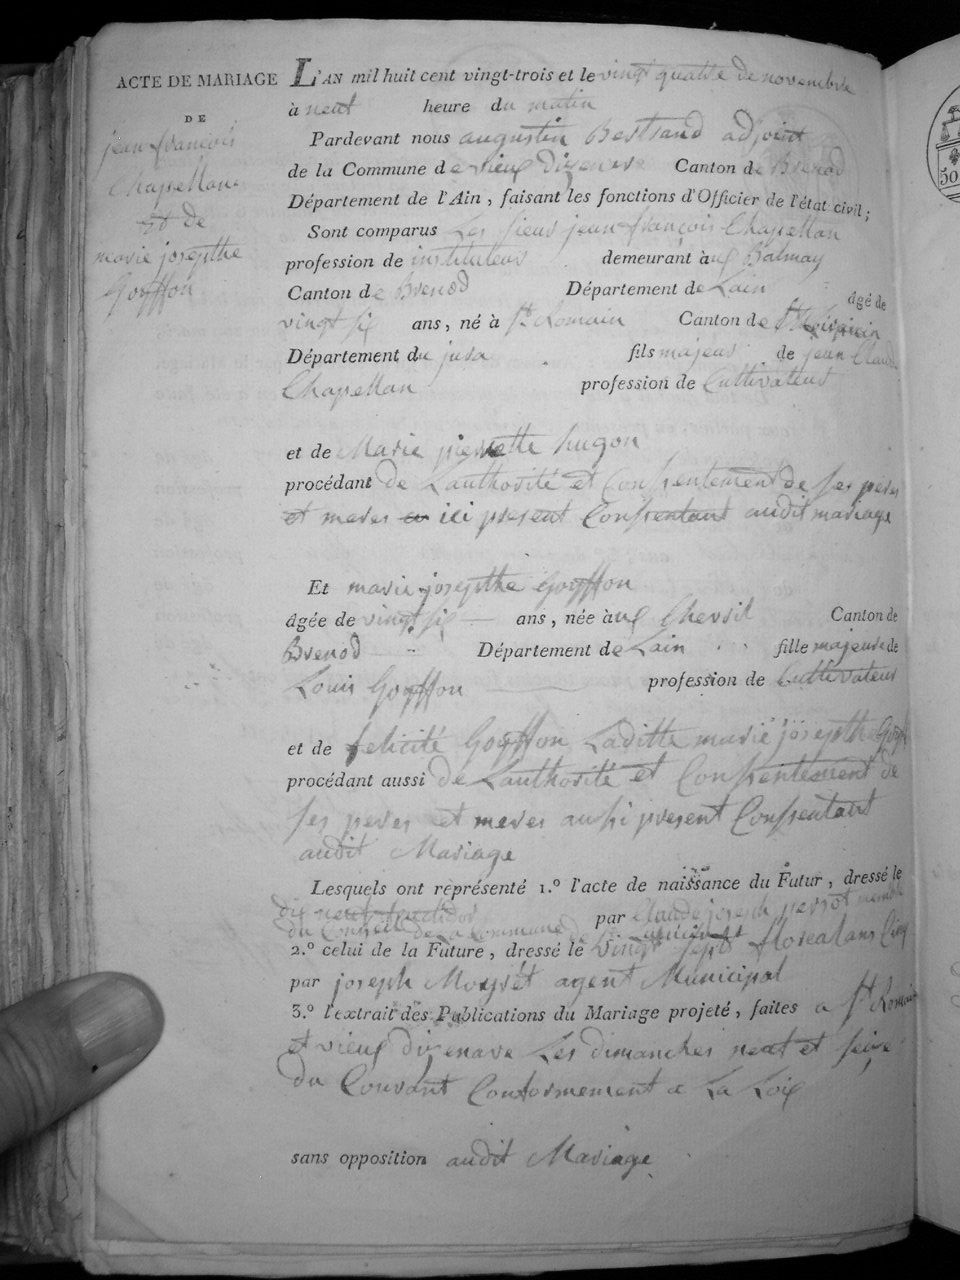 ACTE DE MARIAGE
DE
jean françois
Chapellan
et de
marie josepthe
Goyffon
L'AN mil huit cent vingt-trois et le vingt quatre de novembre
à neuf heure du matin
Pardevant nous augustin Bertrand adjoint
de la Commune de vieux Dizenave Canton de Brenod
Département de l'Ain, faisant les fonctions d'Officier de l'état civil;
Sont comparus Les sieur jean françois Chapellan
profession de instituteur demeurant àux Balmay
Canton de Brenod Département de Lain âgé de
vingt six ans, né à St Romain Canton de
Département du jura fils majeur de jean Claude
Chapellan profession de Cultivateur
et de Marie pierrette hugon
procédant de Lauthorité et Consentement de ses peres
et meres ici present Consentant audit mariage
Et marie josepthe Goyffon
âgée de vingt six ans, née àux Chevril Canton de
Brenod Département de Lain fille majeure de
Louis Goyffon profession de Cultivateur
et de felicité Goyffon Laditte marie josepthe Goyff
procédant aussi de Lauthorité et Consentement de
ses peres et meres aussi present Consentant
audit Mariage
Lesquels ont représenté 1.º l'acte de naissance du Futur, dressé le
dix neuf par Claude joseph perrot membre
du Conseil de La Commune de
2.º celui de la Future, dressé le vingt sept floreal ans Cinq
par joseph Moyret agent Municipal
3.º l'extrait des Publications du Mariage projeté, faites a St Romain
et vieux dizenave Les dimanches neuf et seize
du Courant Conformement a La Loix
sans opposition audit Mariage
50